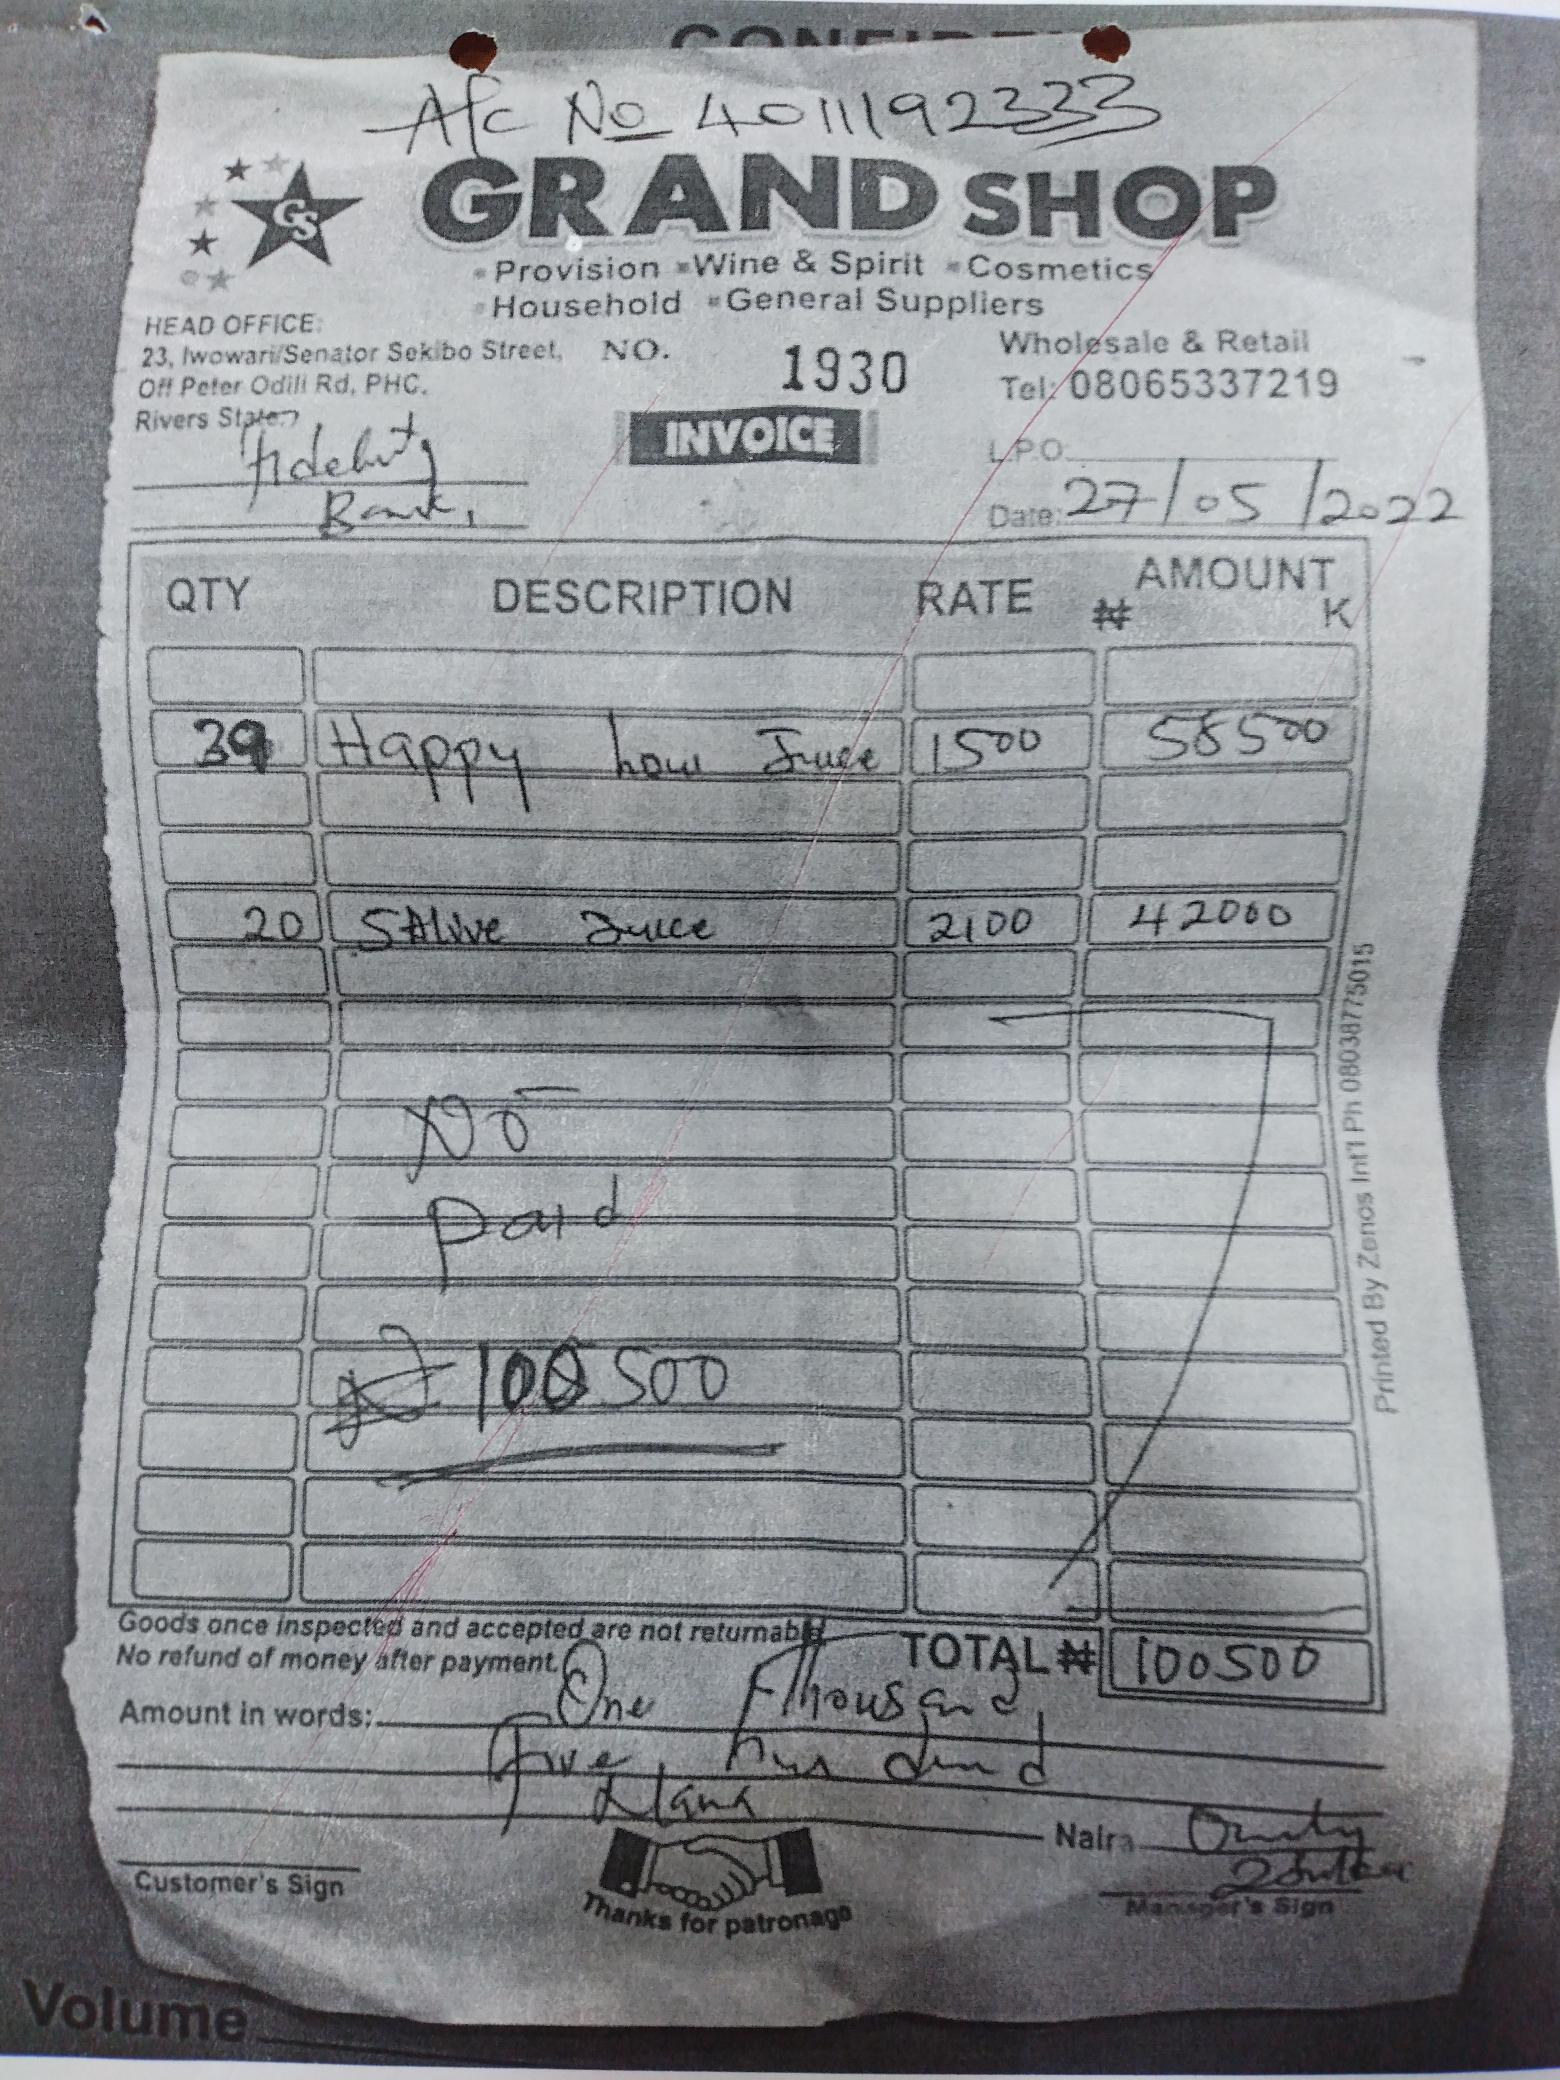 A/c No 4011192333
GS
GRAND SHOP
Provision Wine & Spirit Cosmetics
Household General Suppliers
HEAD OFFICE:
23, Iwowari/Senator Sekibo Street,
Off Peter Odili Rd, PHC.
Rivers State.
NO. 1930
Wholesale & Retail
Tel: 08065337219
INVOICE
L.P.O.
Fidelity
Bank,
Date: 27/05/2022
QTY DESCRIPTION RATE AMOUNT
₦ K
39 Happy hour Juice 1500 58500
20 5Alive Juice 2100 42000
No
paid
₦ 100500
Printed By Zenos Int'l Ph 08038775015
Goods once inspected and accepted are not returnable
No refund of money after payment.
TOTAL ₦ 100500
Amount in words: One Thousand
Five hundred
Naira
Naira
Customer's Sign
Manager's Sign
Thanks for patronage
Volume